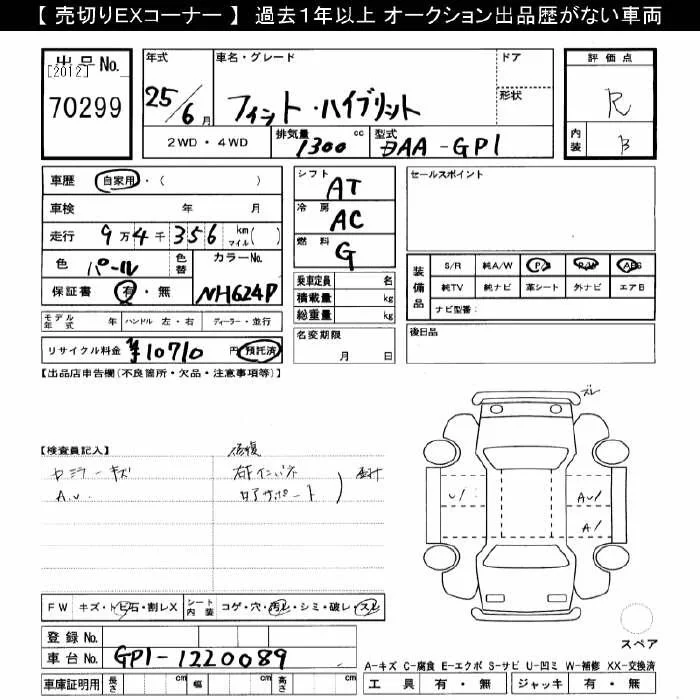 【 売切りEXコーナー 】 過去1年以上 オークション出品歴がない車両
出品 No. 年式 車名・グレード ドア 評価点
[2012]
70299 25/6月 フィット・ハイブリット 形状 R
2WD・4WD 排気量 1300 cc 型式 DAA-GP1 内装 B
車歴 自家用・( ) シフト AT セールスポイント
車検 年 月 冷房 AC
走行 9万4千356 km マイル( ) 燃料 G
色 パール 色替 カラーNo. NH624P 乗車定員 名 装備品 S/R 純A/W P/S P/W ABS
保証書 有・無 積載量 kg 純TV 純ナビ 革シート 外ナビ エアB
総重量 kg ナビ型番:
モデル年式 年 ハンドル 左・右 ディーラー・並行 名変期限 年 月 日 後日品
リサイクル料金 ¥10710 円 預託済
【出品店申告欄(不良箇所・欠品・注意事項等)】
ズレ
【検査員記入】 修復
ミラーキズ 右インパネ
A.U. サポート
U/ AU/
A/
FW キズ・トビ石・割レX シート内装 コゲ・穴・汚レ・シミ・破レ・スレ
登録No. スペア
車台No. GP1-1220089
A-キズ C-腐食 E-エクボ S-サビ U-凹ミ W-補修 XX-交換済
車庫証明用 長さ cm 幅 cm 高さ cm 工具 有・無 ジャッキ 有・無